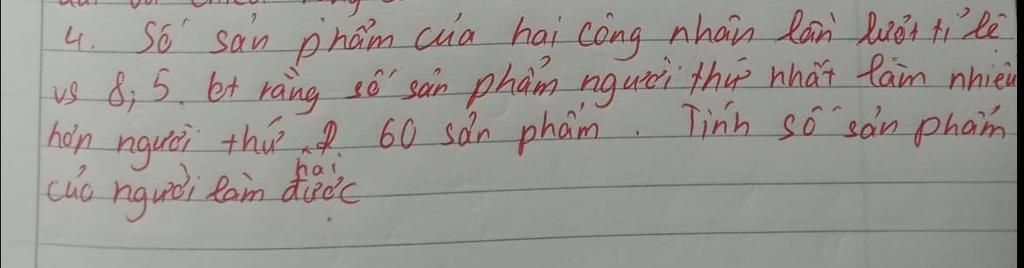 4. Số sản phẩm của hai công nhân lần lượt tỉ lệ
vs 8; 5. bt rằng số sản phẩm người thứ nhất làm nhiều
hơn người thứ 2 60 sản phẩm. Tính số sản phẩm
của người làm được
hai